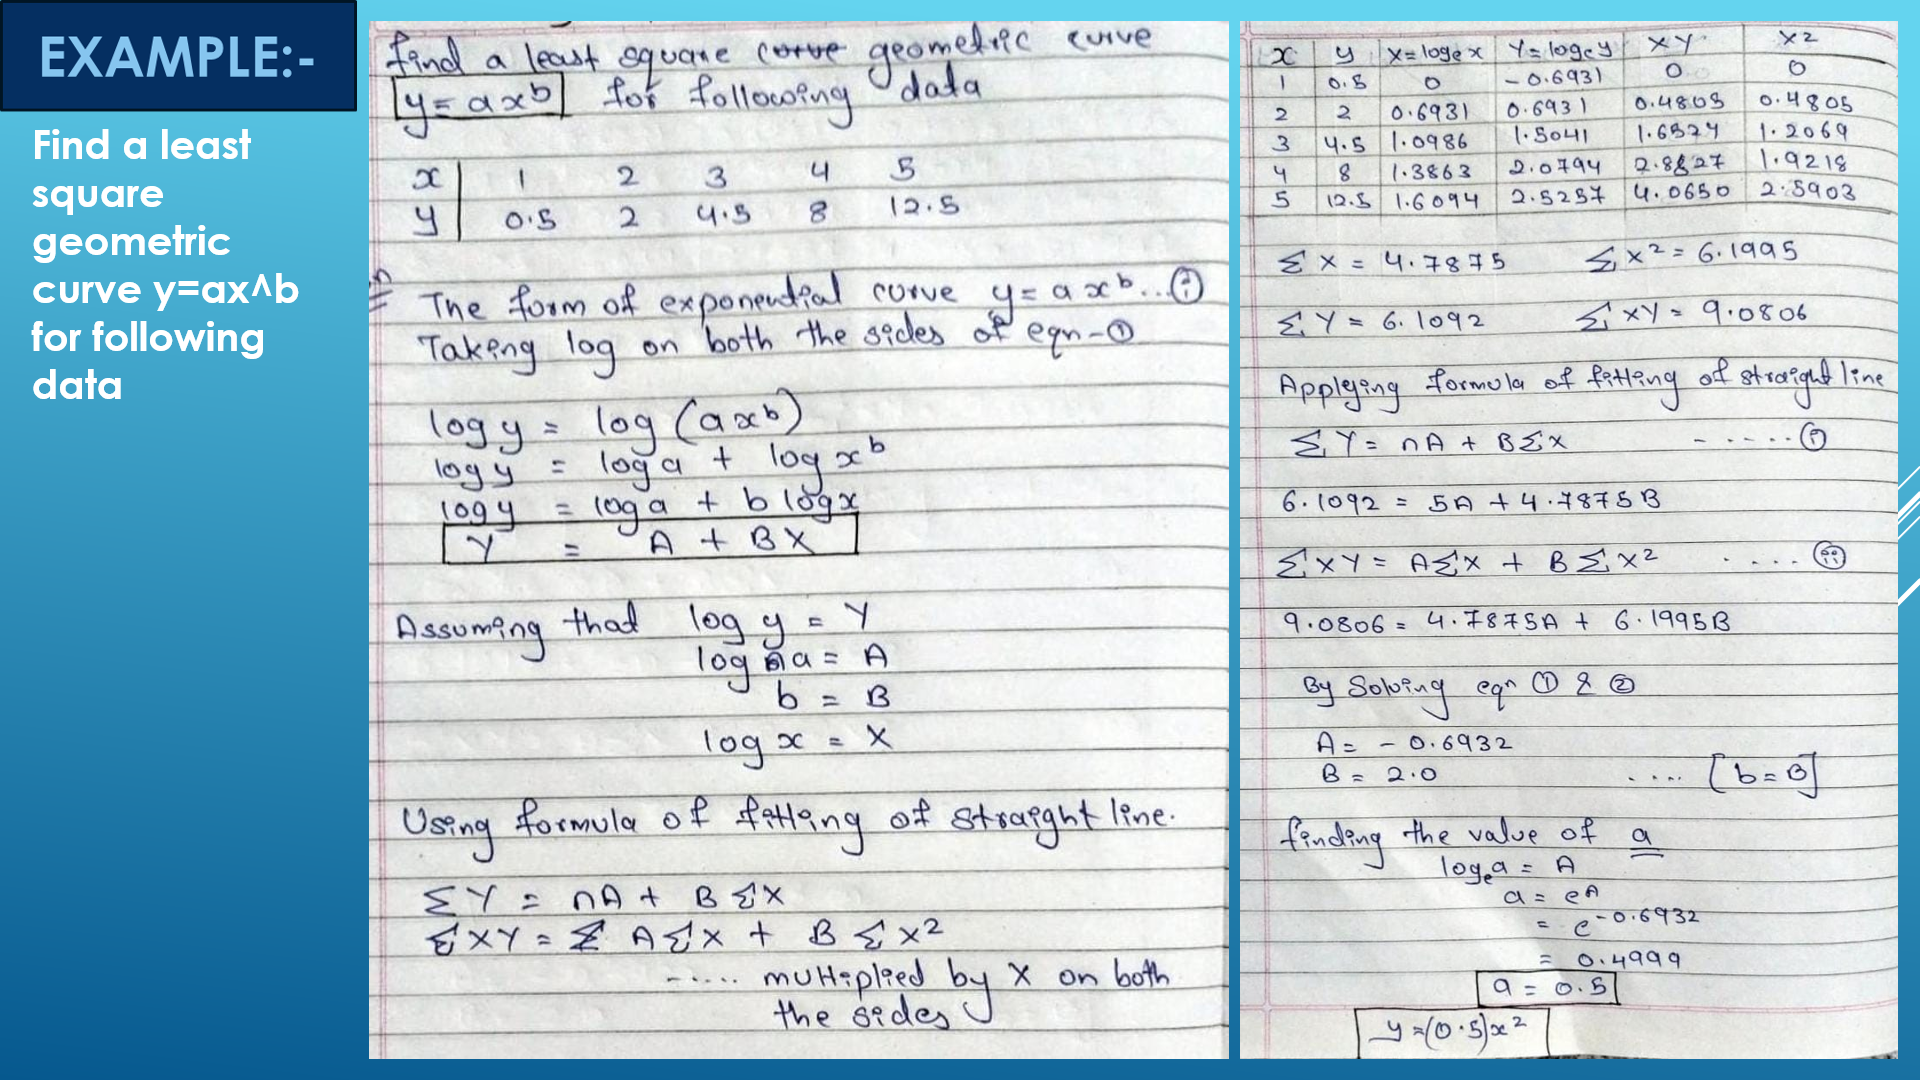 EXAMPLE:-
Find a least
square
geometric
curve y=ax^b
for following
data
find a least square geometric curve
y = axᵇ for following data
x 1 2 3 4 5
y 0.5 2 4.5 8 12.5
The form of exponential curve y = axᵇ ..①
Taking log on both the sides of eqn-①
log y = log (axᵇ)
log y = log a + log xᵇ
log y = log a + b log x
Y = A + BX
Assuming that log y = Y
log a = A
b = B
log x = X
Using formula of fitting of straight line.
ΣY = nA + BΣX
ΣXY = AΣX + BΣX²
..... multiplied by X on both
the sides
x y X=logₑx Y=logₑy XY X²
1 0.5 0 -0.6931 0 0
2 2 0.6931 0.6931 0.4805 0.4805
3 4.5 1.0986 1.5041 1.6524 1.2069
4 8 1.3863 2.0794 2.8827 1.9218
5 12.5 1.6094 2.5257 4.0650 2.5903
ΣX = 4.7875 ΣX² = 6.1995
ΣY = 6.1092 ΣXY = 9.0806
Applying formula of fitting of straight line
ΣY = nA + BΣX ......ⓘ
6.1092 = 5A + 4.7875B
ΣXY = AΣX + BΣX² .....ⓘⓘ
9.0806 = 4.7875A + 6.1995B
By Solving eqn ① & ②
A = -0.6932
B = 2.0 .... [b=B]
finding the value of a
logₑa = A
a = eᴬ
= e⁻⁰·⁶⁹³²
= 0.4999
a = 0.5
y = (0.5)x²